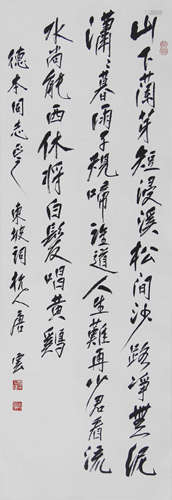 山下兰芽短浸溪松间沙路净无泥
潇潇暮雨子规啼谁道人生难再少君看流
水尚能西休将白发唱黄鸡
德本同志正之 东坡词 杭人唐云